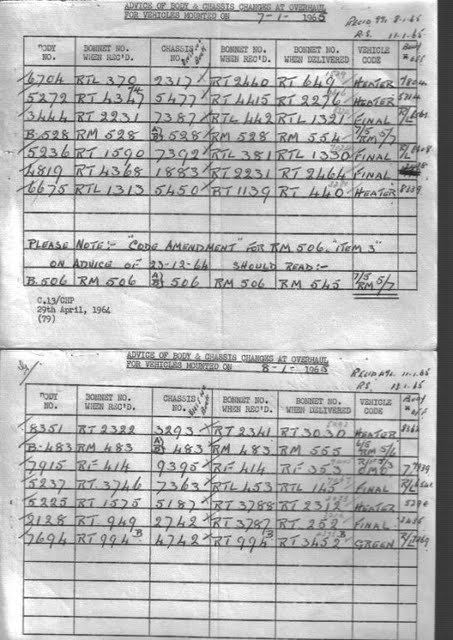 ADVICE OF BODY & CHASSIS CHANGES AT OVERHAUL
FOR VEHICLES MOUNTED ON 7-1-1965
8.1.65
R.S. 11.1.65
BODY NO. BONNET NO. WHEN REC'D. CHASSIS NO. BONNET NO. WHEN REC'D. BONNET NO. WHEN DELIVERED VEHICLE CODE Body
6704 RTL 370 2317 RT 2440 RT 649 HEATER
5272 RT 4347 5477 RT 4415 RT 2276 HEATER
3444 RT 2231 7387 RTL 442 RTL 1321 FINAL
B.528 RM 528 A/B 528 RM 528 RM 554 7/5 RM 5/7
5236 RT 1590 7392 RTL 381 RTL 1330 FINAL
4819 RT 4368 1883 RT 2231 RT 2464 FINAL
6675 RTL 1313 5450 RT 1139 RT 440 HEATER
PLEASE NOTE:- "CODE AMENDMENT" FOR RM 506. "ITEM 3"
ON ADVICE OF 23-12-64 SHOULD READ:-
B.506 RM 506 A/B 506 RM 506 RM 545 7/5 RM 5/7
C.13/CHP
29th April, 1964
(79)
ADVICE OF BODY & CHASSIS CHANGES AT OVERHAUL
FOR VEHICLES MOUNTED ON 8-1-1965
11.1.65
R.S.
BODY NO. BONNET NO. WHEN REC'D. CHASSIS NO. BONNET NO. WHEN REC'D. BONNET NO. WHEN DELIVERED VEHICLE CODE Body
8351 RT 2322 3293 RT 2341 RT 3030 HEATER
B-483 RM 483 A/B 483 RM 483 RM 555 6/5 RM 5/6
7915 RF 414 9395 RF 414 RF 353
5237 RT 3746 7363 RTL 453 RTL 145 FINAL
5225 RT 1575 5187 RT 3788 RT 2312 HEATER
2128 RT 949 2742 RT 3787 RT 252 FINAL
7694 RT 994 B 4742 RT 994 B RT 3452 B GREEN